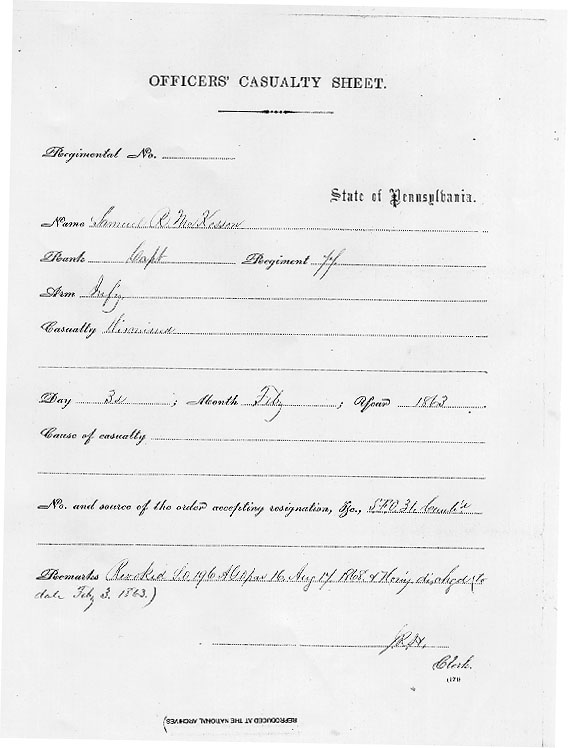 OFFICERS' CASUALTY SHEET.
Regimental No.
State of Pennsylvania.
Name Samuel R. McKesson
Rank Capt Regiment 77
Arm Infy
Casualty Dismissed
Day 3d ; Month Feby ; Year 1863
Cause of casualty
No. and source of the order accepting resignation, &c., S.F.O. 31.
Remarks (Revoked S.O. 196 A.G.O. par 16. Aug 17/ 1868. & Hon'y dischgd to
date Feby 3. 1863.)
Clerk.
(171)
REPRODUCED AT THE NATIONAL ARCHIVES